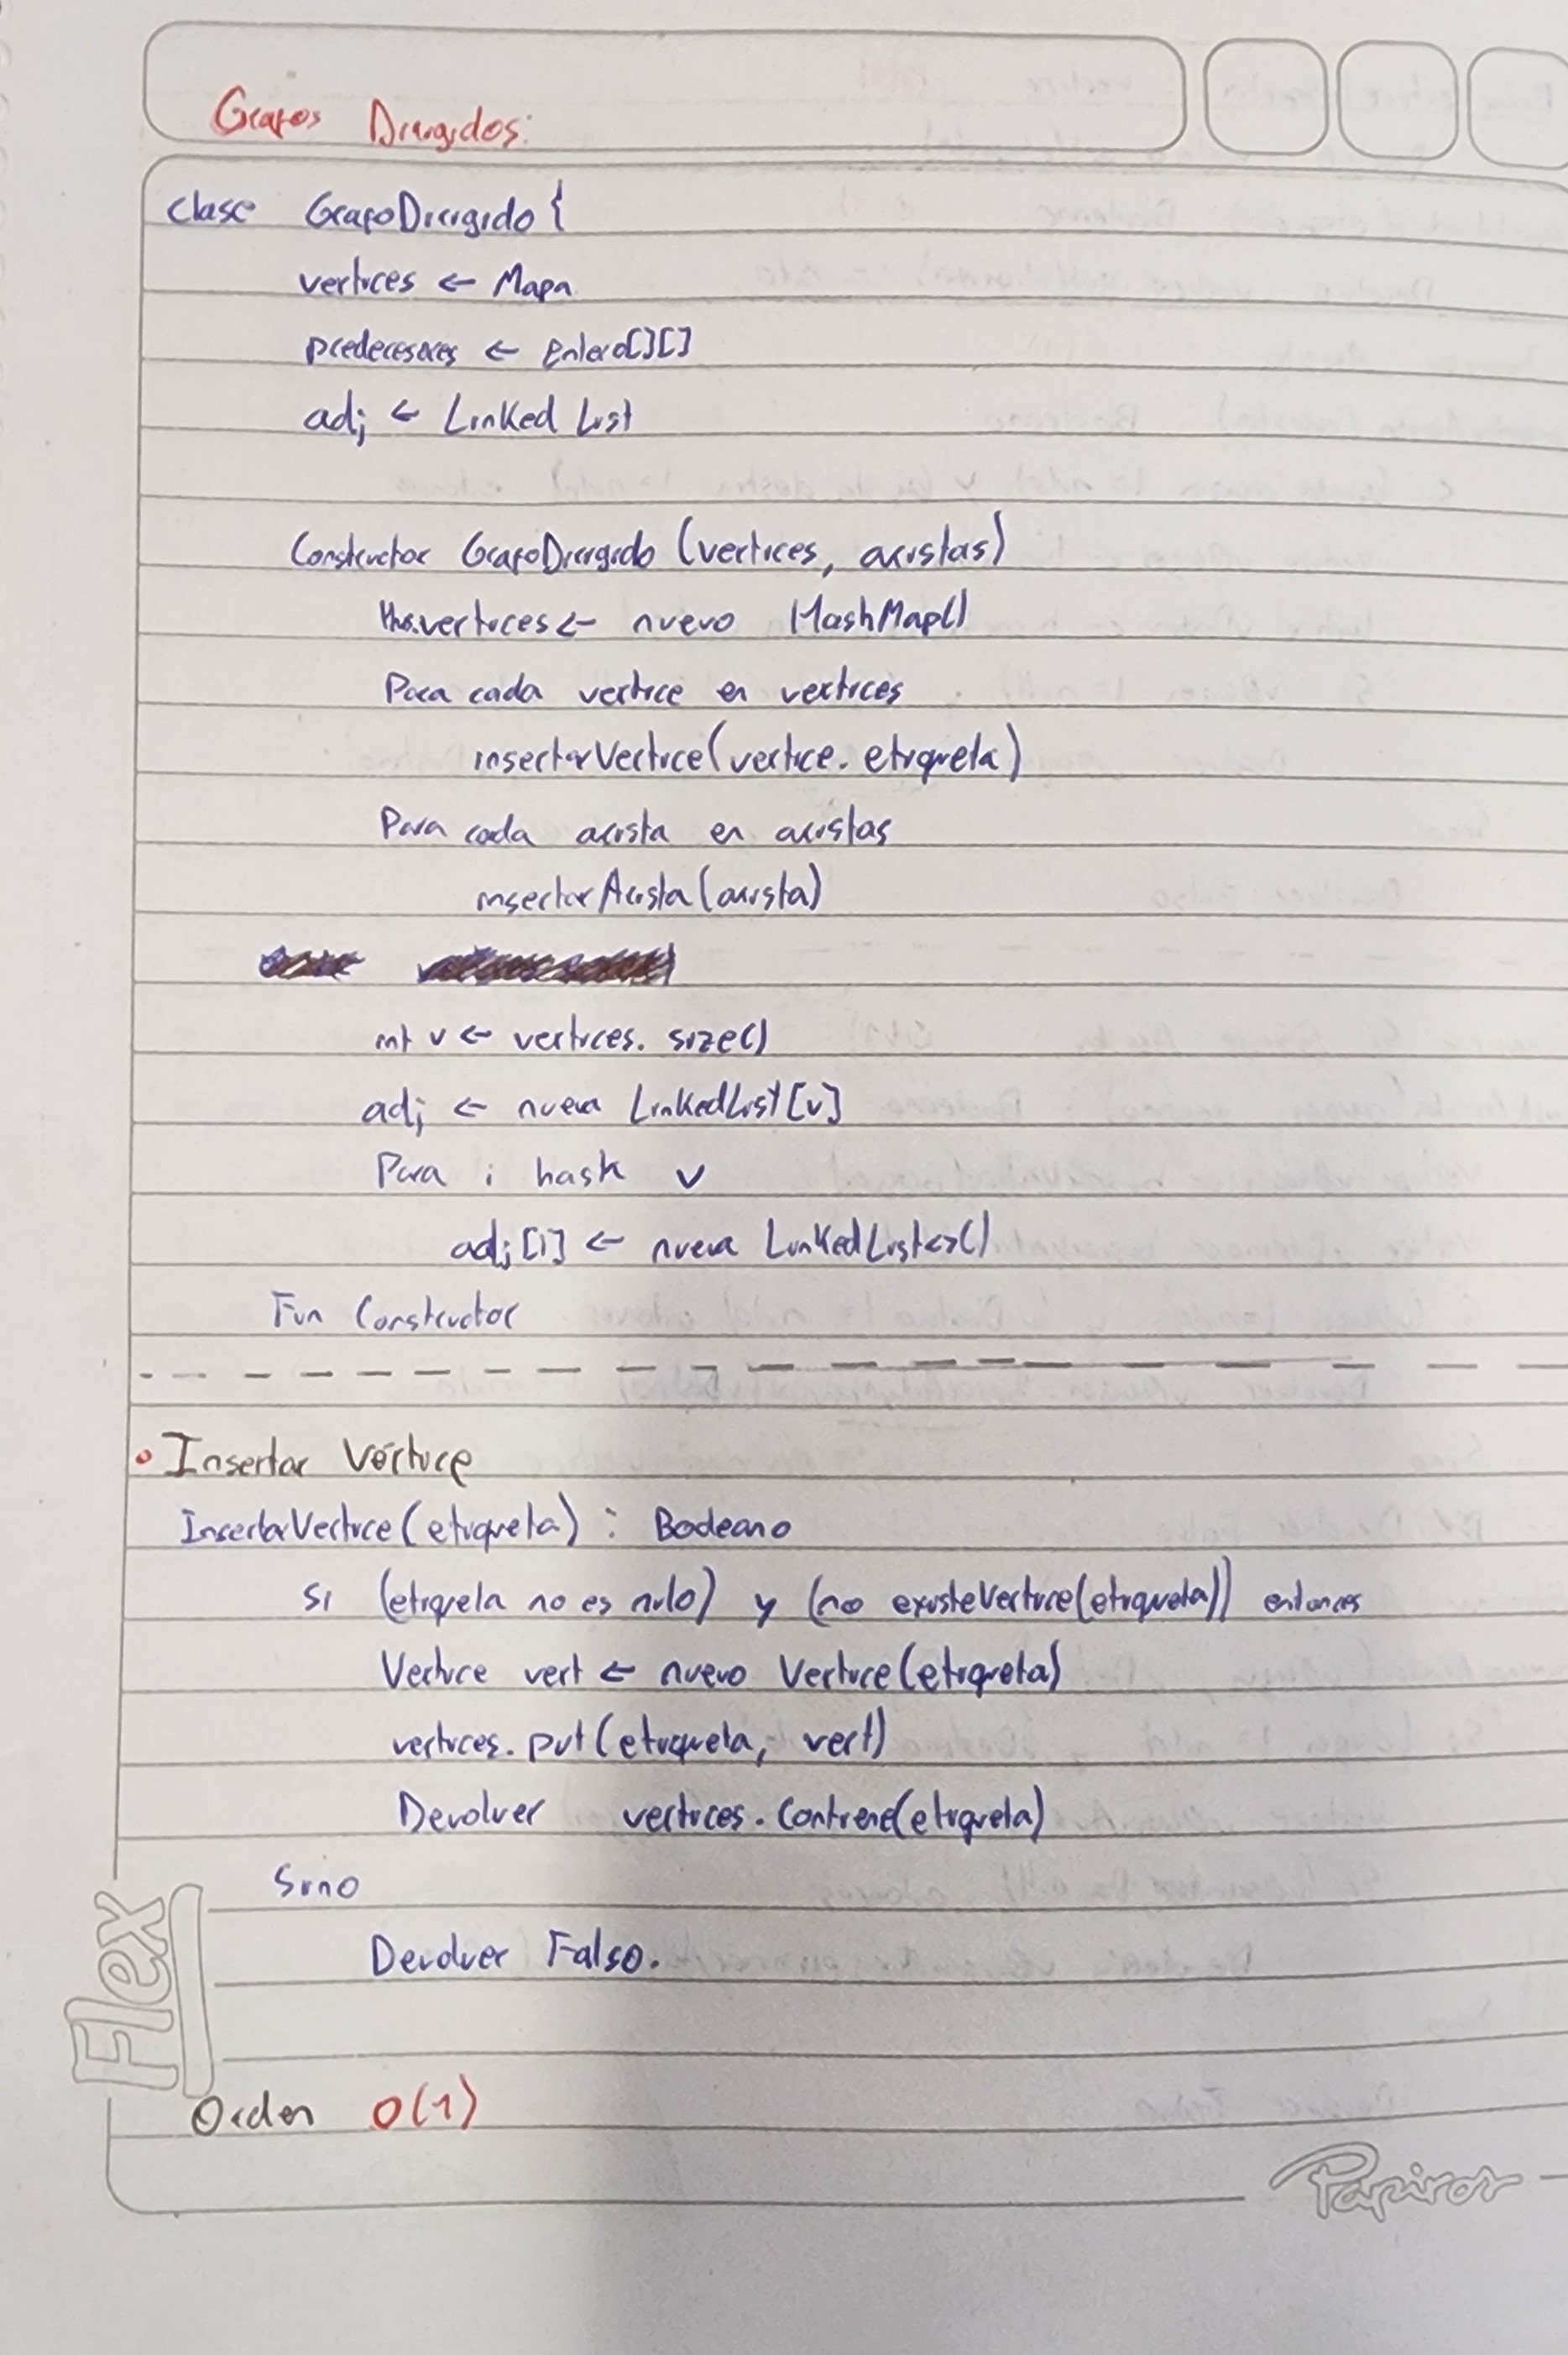 Grafos Dirigidos:
clase GrafoDirigido {
vertices ← Mapa
predecesores ← Entero[][]
adj ← Linked List
Constructor GrafoDirigido (vertices, aristas)
this.vertices ← nuevo HashMap()
Para cada vertice en vertices
insertarVertice(vertice.etiqueta)
Para cada arista en aristas
insertarArista(arista)
int v ← vertices.size()
adj ← nueva LinkedList[v]
Para i hasta v
adj[i] ← nueva LinkedList<>()
Fin Constructor
Insertar Vértice
InsertarVertice(etiqueta): Booleano
Si (etiqueta no es nulo) y (no existeVertice(etiqueta)) entonces
Vertice vert ← nuevo Vertice(etiqueta)
vertices.put(etiqueta, vert)
Devolver vertices.Contiene(etiqueta)
Sino
Devolver Falso.
Flex
Orden O(1)
Papiros